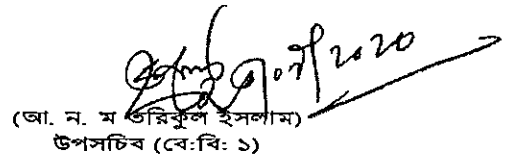 ২০২০
(আ. ন. ম তরিকুল ইসলাম)
উপসচিব (বে:বি: ১)